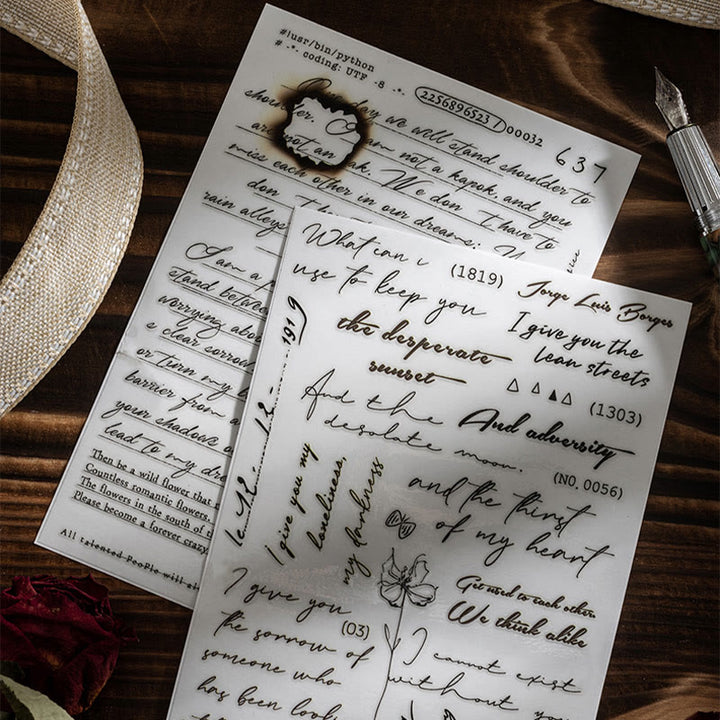 #!usr/bin/python
# -*- coding: UTF -8 -*-
2256896523 / 00032
637
One day we will stand shoulder to
shoulder. I am not a kapok, and you
are not an oak. We don't have to
miss each other in our dreams;
don't
rain alleys
I am a
stand between
worrying about
s clear sorrow
or turn my
barrier from a
your shadows
lead to my
Then be a wild flower that
Countless romantic flowers,
The flowers in the south of
Please become a forever crazy
All talented PeoPle will
What can i
use to keep you
(1819)
Jorge Luis Borges
I give you the
lean streets
the desperate
sunset
(1303)
And the
desolate moon.
And adversity
(NO. 0056)
12 - 1919
I give you my
loneliness,
my darkness
and the thirst
of my heart
Get used to each other.
We think alike
I give you
the sorrow of
someone who
has been
(03)
I cannot exist
without you